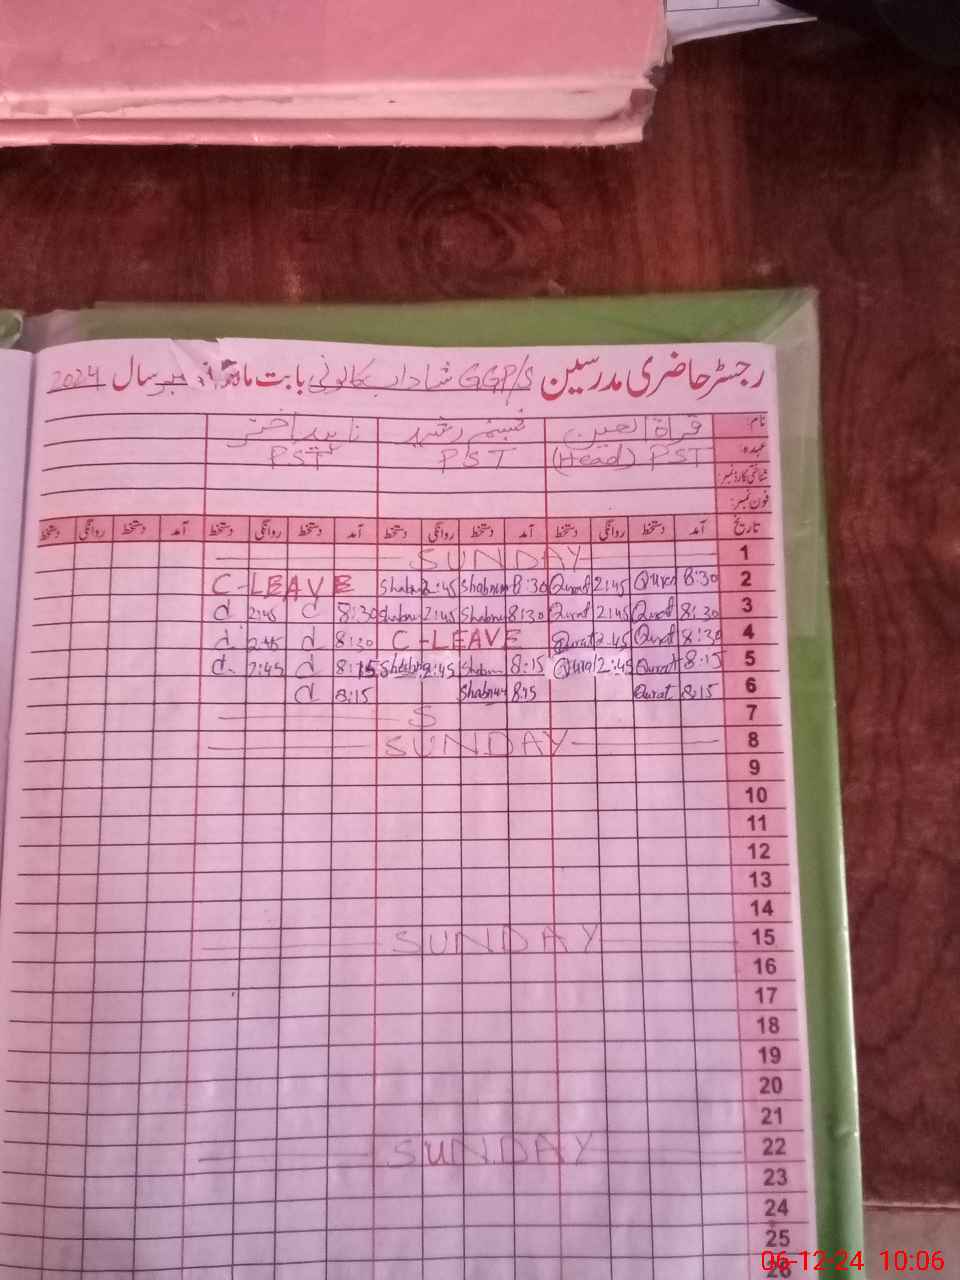 رجسٹر حاضری مدرسین GGP/S شاداب کالونی بابت ماہ دسمبر سال 2024
نام: قراۃ العین شبنم رشید ناہید اختر
عہدہ: PST (Head) PST PST
شناختی کارڈ نمبر:
فون نمبر:
تاریخ آمد دستخط روانگی دستخط آمد دستخط روانگی دستخط آمد دستخط روانگی دستخط دستخط روانگی دستخط
1 SUNDAY
2 8:30 Qurat 2:45 Qurat 8:30 Shabnum 2:45 Shabnum C-LEAVE
3 8:30 Qurat 2:45 Qurat 8:30 Shabnum 2:45 Shabnum 8:30 d 2:45 d
4 8:30 Qurat 2:45 Qurat C-LEAVE 8:30 d 2:45 d
5 8:15 Qurat 2:45 Qurat 8:15 Shabnum 2:45 Shabnum 8:15 d 2:45 d
6 8:15 Qurat 8:15 Shabnum 8:15 d
7 S
8 SUNDAY
9
10
11
12
13
14
15 SUNDAY
16
17
18
19
20
21
22 SUNDAY
23
24
25
26
06-12-24 10:06